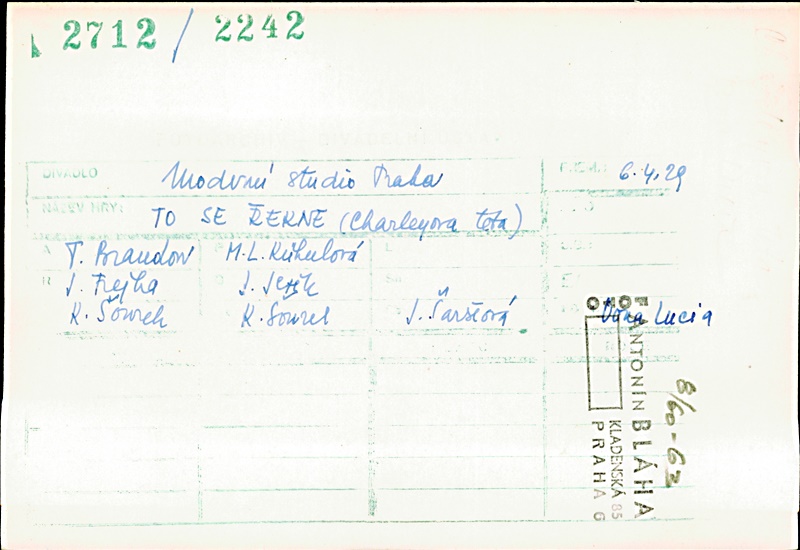 2712 / 2242
DIVADLO Moderní studio Praha 6.4.29
NÁZEV HRY: TO SE ŘEKNE (Charleyova teta)
T. Brandon M.L. Kühulová
J. Frejka J. Ježek
K. Šourek K. Šourek J. Šaršeová Dona Lucia
FOTO
ANTONÍN BLÁHA
KLADENSKÁ 85
PRAHA 6
8/60-63